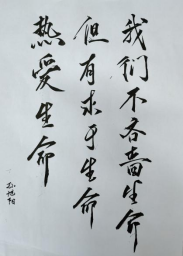 我们不吝啬生命
但有求于生命
热爱生命